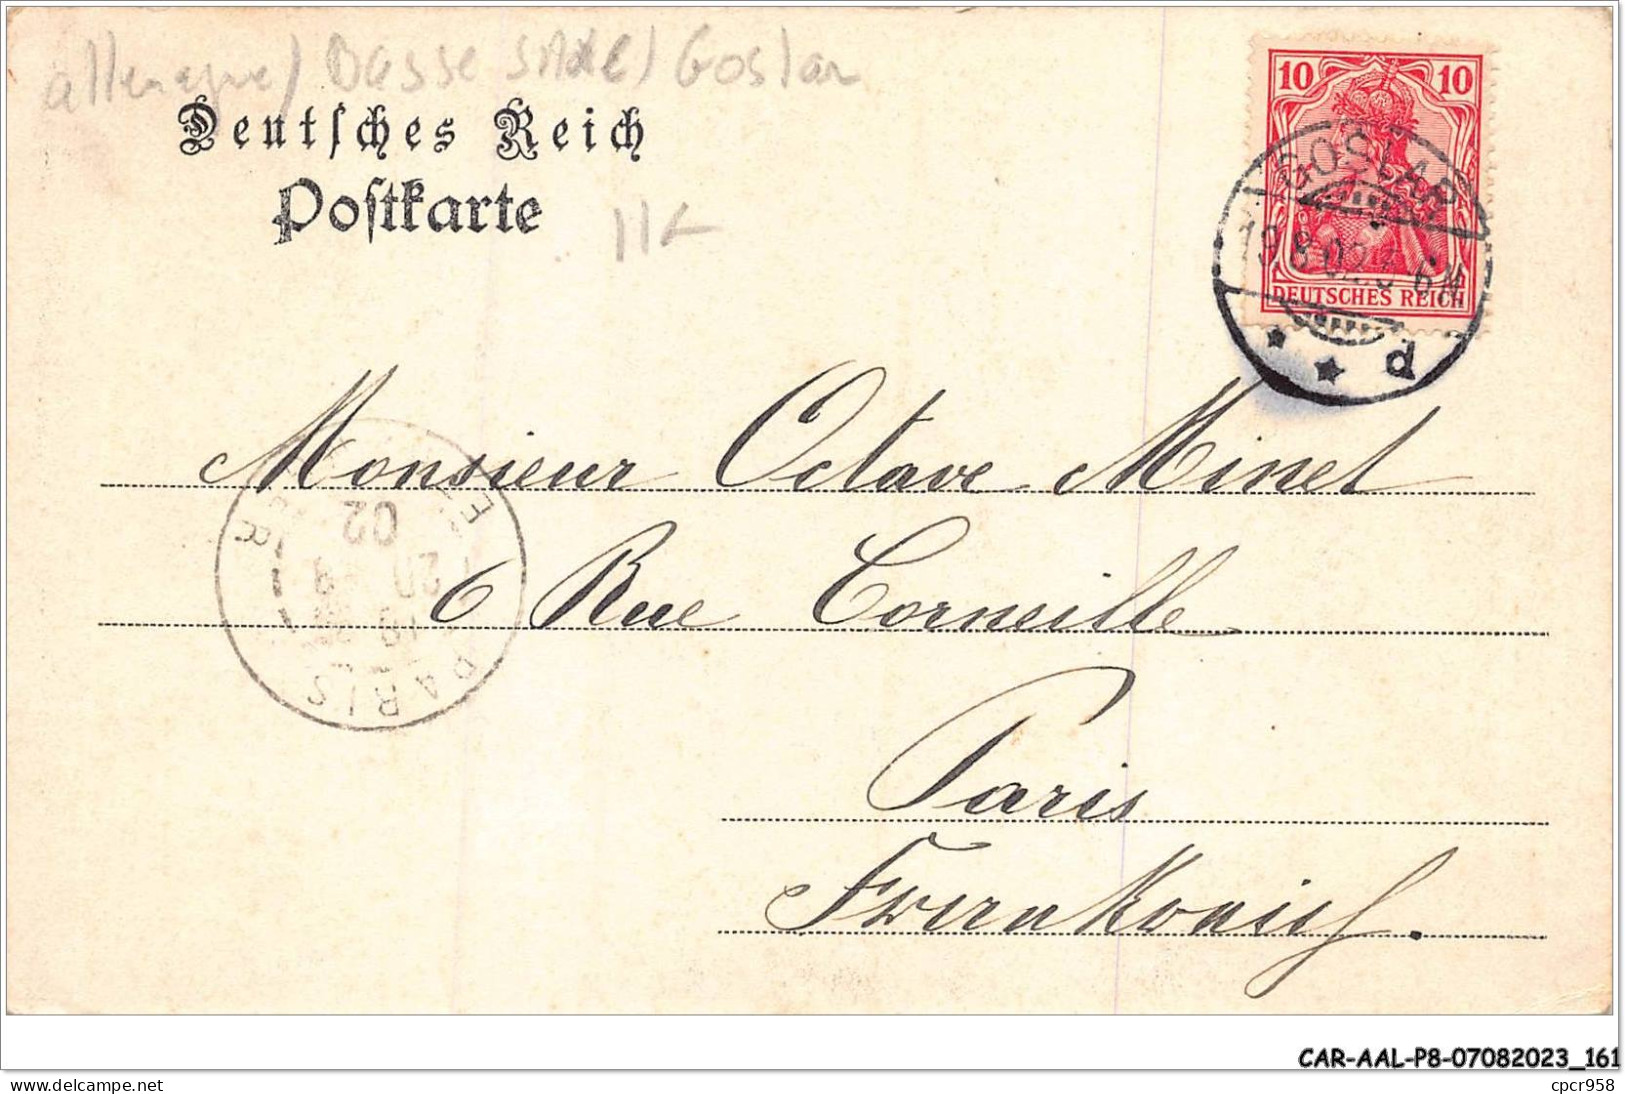 allemagne / Basse Saxe / Goslar
Deutſches Reich
Poſtkarte
11€
10 10
DEUTSCHES REICH
GOSLAR
19.8.02. 6N
* * d
Monsieur Octave Minet
6 Rue Corneille
Paris
Frankreich.
PARIS
02
CAR-AAL-P8-07082023_161
delcampe.net
cpcr958